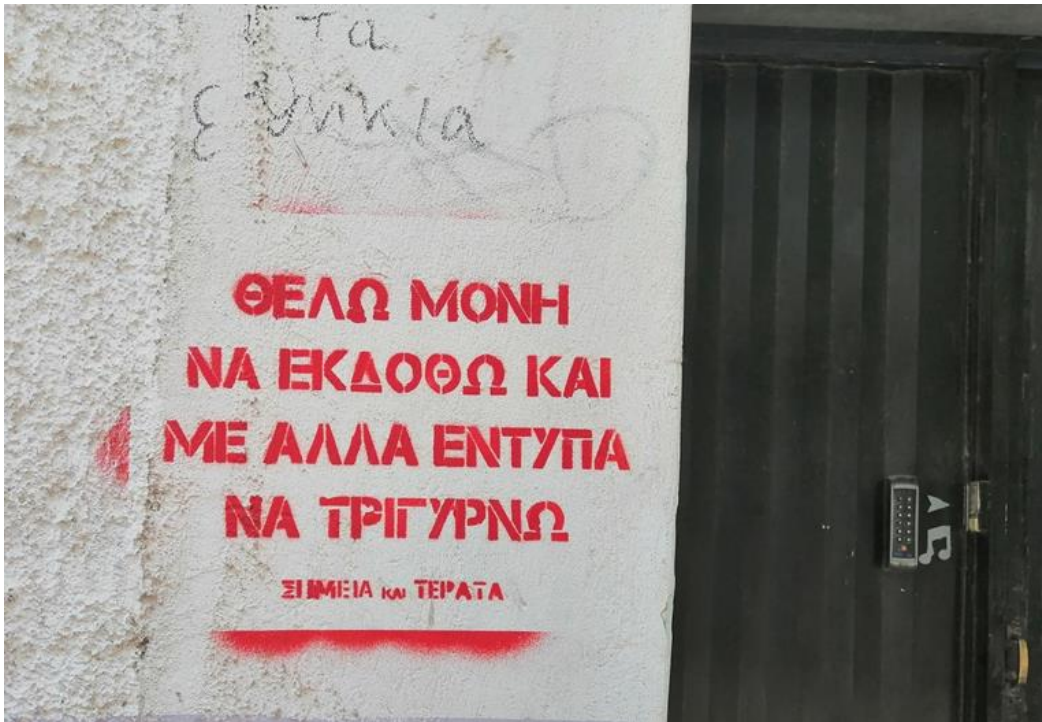 τα
ΘΕΛΩ ΜΟΝΗ
ΝΑ ΕΚΔΟΘΩ ΚΑΙ
ΜΕ ΑΛΛΑ ΕΝΤΥΠΑ
ΝΑ ΤΡΙΓΥΡΝΩ
ΣΗΜΕΙΑ και ΤΕΡΑΤΑ